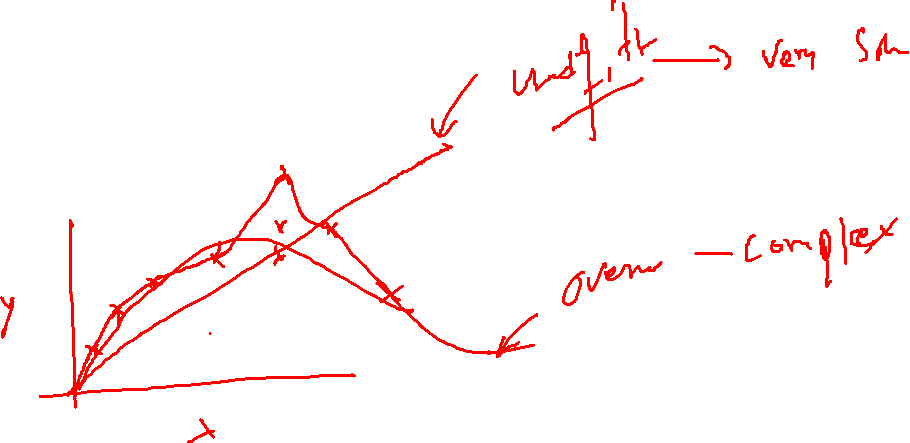 Undfit → Very Sm
y
Overn — Complex
x